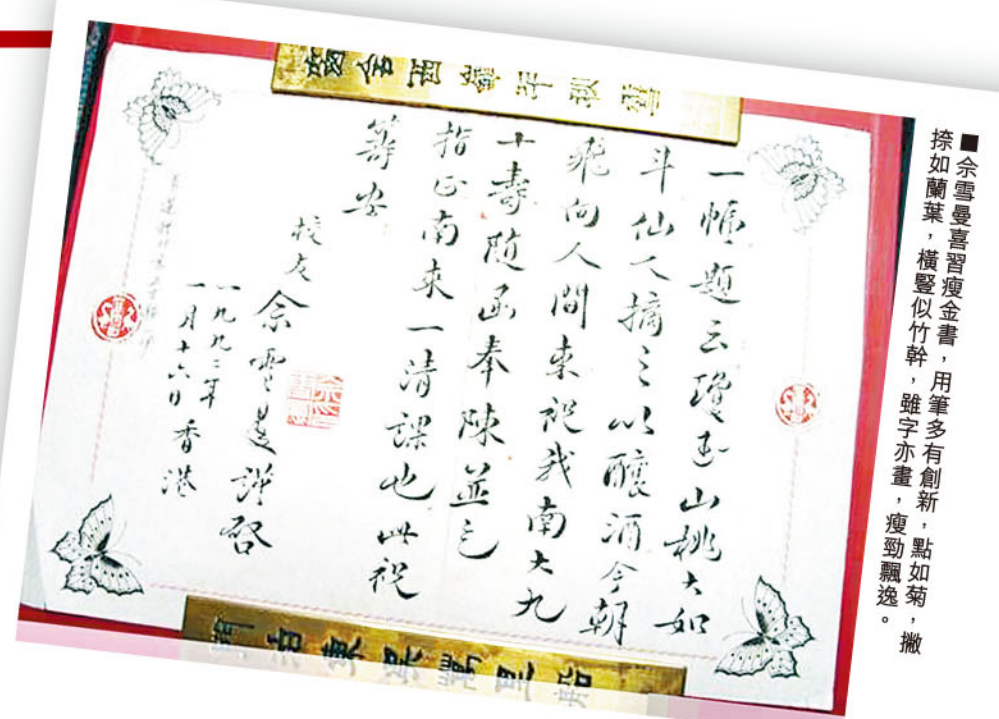 ■佘雪曼喜習瘦金書，用筆多有創新，點如菊，撇
捺如蘭葉，橫豎似竹幹，雖字亦畫，瘦勁飄逸。
窗含西嶺千秋雪
一題云瓊玉山桃大如
斗仙人摘之以釀酒今朝
飛向人間來祝我南大九
十壽隨函奉陳並乞
指正南來一清課也此祝
籌安
校友佘雪曼謹啓
一九九二年
一月十六日香港
門泊東吳萬里船